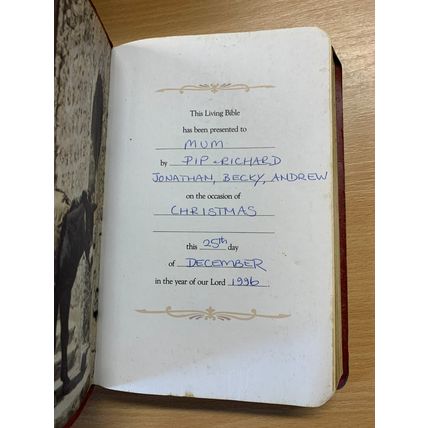 This Living Bible
has been presented to
MUM
by PIP + RICHARD
JONATHAN, BECKY, ANDREW
on the occasion of
CHRISTMAS
this 25th day
of DECEMBER
in the year of our Lord 1996